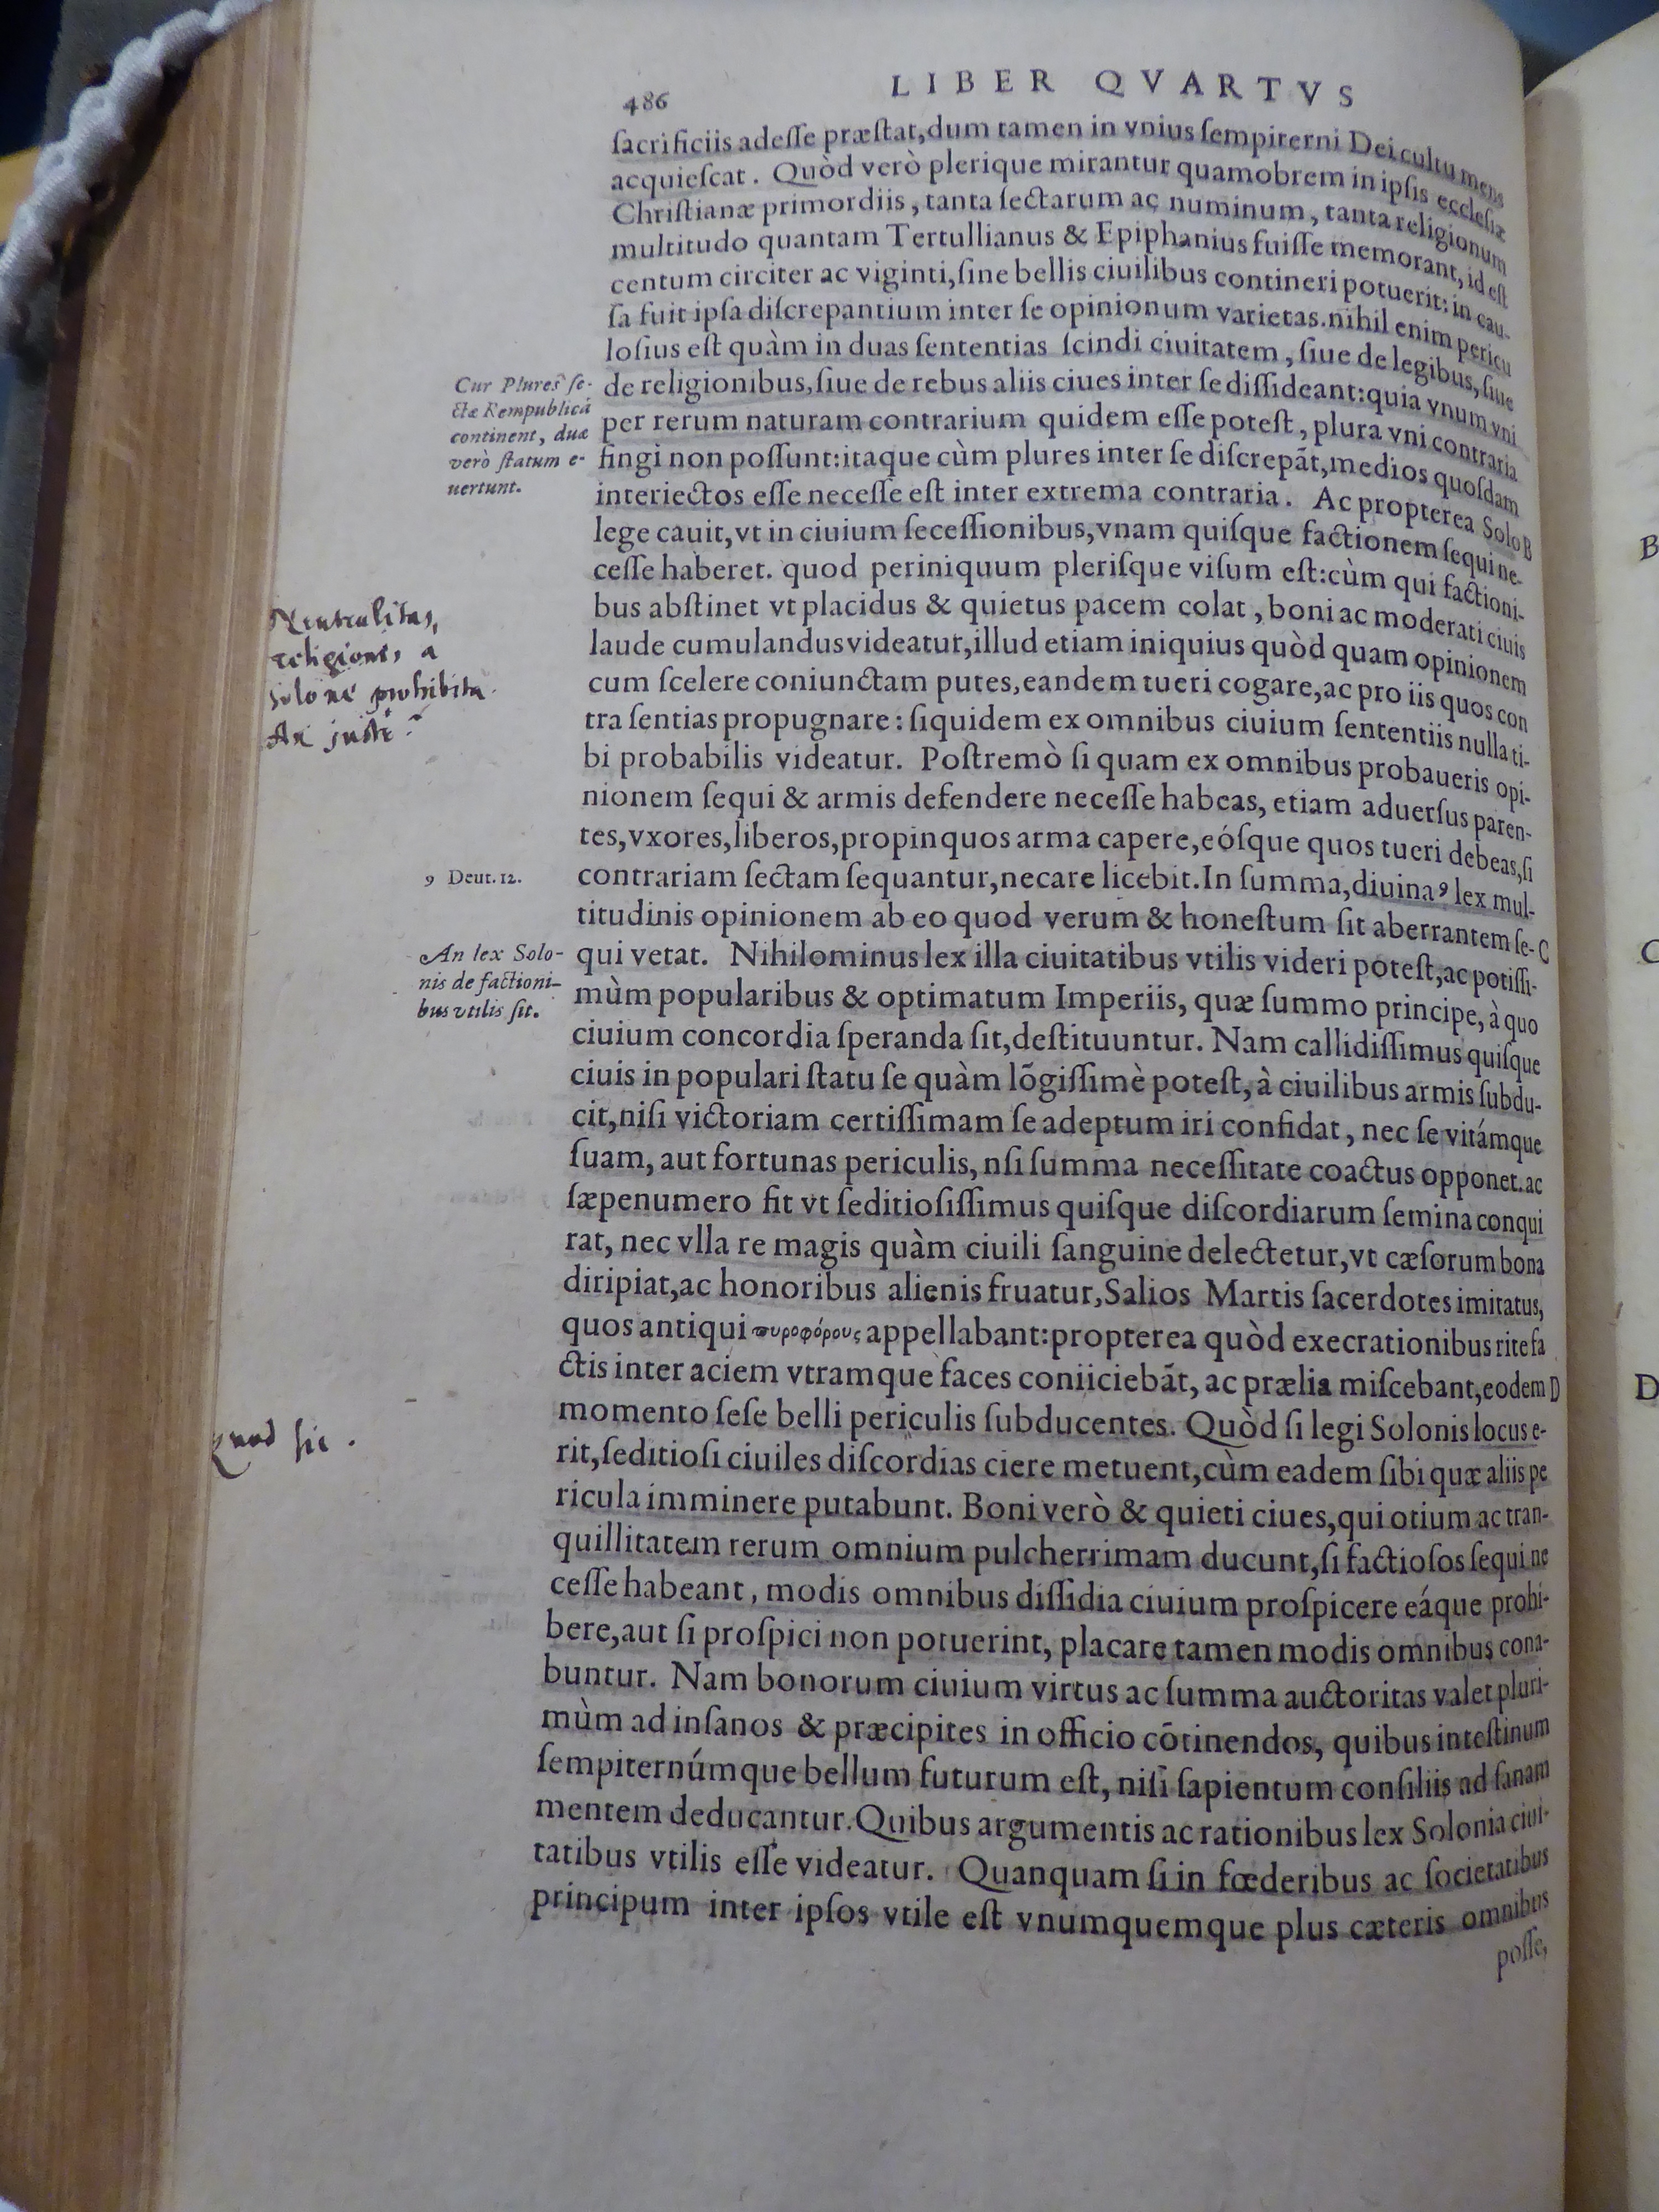 486
LIBER QVARTVS
ſacrificiis adeſſe præſtat,dum tamen in vnius ſempiterni Dei cultu mens
acquieſcat. Quòd verò plerique mirantur quamobrem in ipſis eccleſiæ
Chriſtianæ primordiis, tanta ſectarum ac numinum, tanta religionum
multitudo quantam Tertullianus & Epiphanius fuiſſe memorant, id eſt
centum circiter ac viginti,ſine bellis ciuilibus contineri potuerit: in cau-
ſa fuit ipſa diſcrepantium inter ſe opinionum varietas.nihil enim pericu
loſius eſt quàm in duas ſententias ſcindi ciuitatem, ſiue de legibus, ſiue
de religionibus,ſiue de rebus aliis ciues inter ſe diſſideant:quia vnum vni
per rerum naturam contrarium quidem eſſe poteſt, plura vni contraria
fingi non poſſunt:itaque cùm plures inter ſe diſcrepāt,medios quoſdam
interiectos eſſe neceſſe eſt inter extrema contraria. Ac propterea Solo B
lege cauit,vt in ciuium ſeceſſionibus,vnam quiſque factionem ſequi ne-
ceſſe haberet. quod periniquum pleriſque viſum eſt:cùm qui factioni-
bus abſtinet vt placidus & quietus pacem colat, boni ac moderati ciuis
laude cumulandus videatur,illud etiam iniquius quòd quam opinionem
cum ſcelere coniunctam putes,eandem tueri cogare,ac pro iis quos con
tra ſentias propugnare: ſiquidem ex omnibus ciuium ſententiis nulla ti-
bi probabilis videatur. Poſtremò ſi quam ex omnibus probaueris opi-
nionem ſequi & armis defendere neceſſe habeas, etiam aduerſus paren-
tes,vxores,liberos,propinquos arma capere,eóſque quos tueri debeas,ſi
contrariam ſectam ſequantur,necare licebit.In ſumma,diuina 9 lex mul-
titudinis opinionem ab eo quod verum & honeſtum ſit aberrantem ſe- C
qui vetat. Nihilominus lex illa ciuitatibus vtilis videri poteſt,ac potiſſi-
mùm popularibus & optimatum Imperiis, quæ ſummo principe, à quo
ciuium concordia ſperanda ſit,deſtituuntur. Nam callidiſſimus quiſque
ciuis in populari ſtatu ſe quàm lōgiſſimè poteſt, à ciuilibus armis ſubdu-
cit,niſi victoriam certiſſimam ſe adeptum iri confidat, nec ſe vitámque
ſuam, aut fortunas periculis, nſi ſumma neceſſitate coactus opponet.ac
ſæpenumero fit vt ſeditioſiſſimus quiſque diſcordiarum ſemina conqui
rat, nec vlla re magis quàm ciuili ſanguine delectetur,vt cæſorum bona
diripiat,ac honoribus alienis fruatur,Salios Martis ſacerdotes imitatus,
quos antiqui πυροφόρους appellabant:propterea quòd execrationibus rite fa
ctis inter aciem vtramque faces coniiciebāt, ac prælia miſcebant,eodem D
momento ſeſe belli periculis ſubducentes. Quòd ſi legi Solonis locus e-
rit,ſeditioſi ciuiles diſcordias ciere metuent,cùm eadem ſibi quæ aliis pe
ricula imminere putabunt. Boni verò & quieti ciues,qui otium ac tran-
quillitatem rerum omnium pulcherrimam ducunt,ſi factioſos ſequi ne
ceſſe habeant, modis omnibus diſſidia ciuium proſpicere eáque prohi-
bere,aut ſi proſpici non potuerint, placare tamen modis omnibus cona-
buntur. Nam bonorum ciuium virtus ac ſumma auctoritas valet pluri-
mùm ad inſanos & præcipites in officio cōtinendos, quibus inteſtinum
ſempiternúmque bellum futurum eſt, niſi ſapientum conſiliis ad ſanam
mentem deducantur.Quibus argumentis ac rationibus lex Solonia ciui-
tatibus vtilis eſſe videatur. Quanquam ſi in fœderibus ac ſocietatibus
principum inter ipſos vtile eſt vnumquemque plus cæteris omnibus
poſſe,
Cur Plures ſe-
ctæ Rempublicā
continent, duæ
verò ſtatum e-
uertunt.
Neutralitas,
religionis a
Solone prohibita
An juste?
9 Deut.12.
An lex Solo-
nis de factioni-
bus vtilis ſit.
Quod sic.
B
C
D